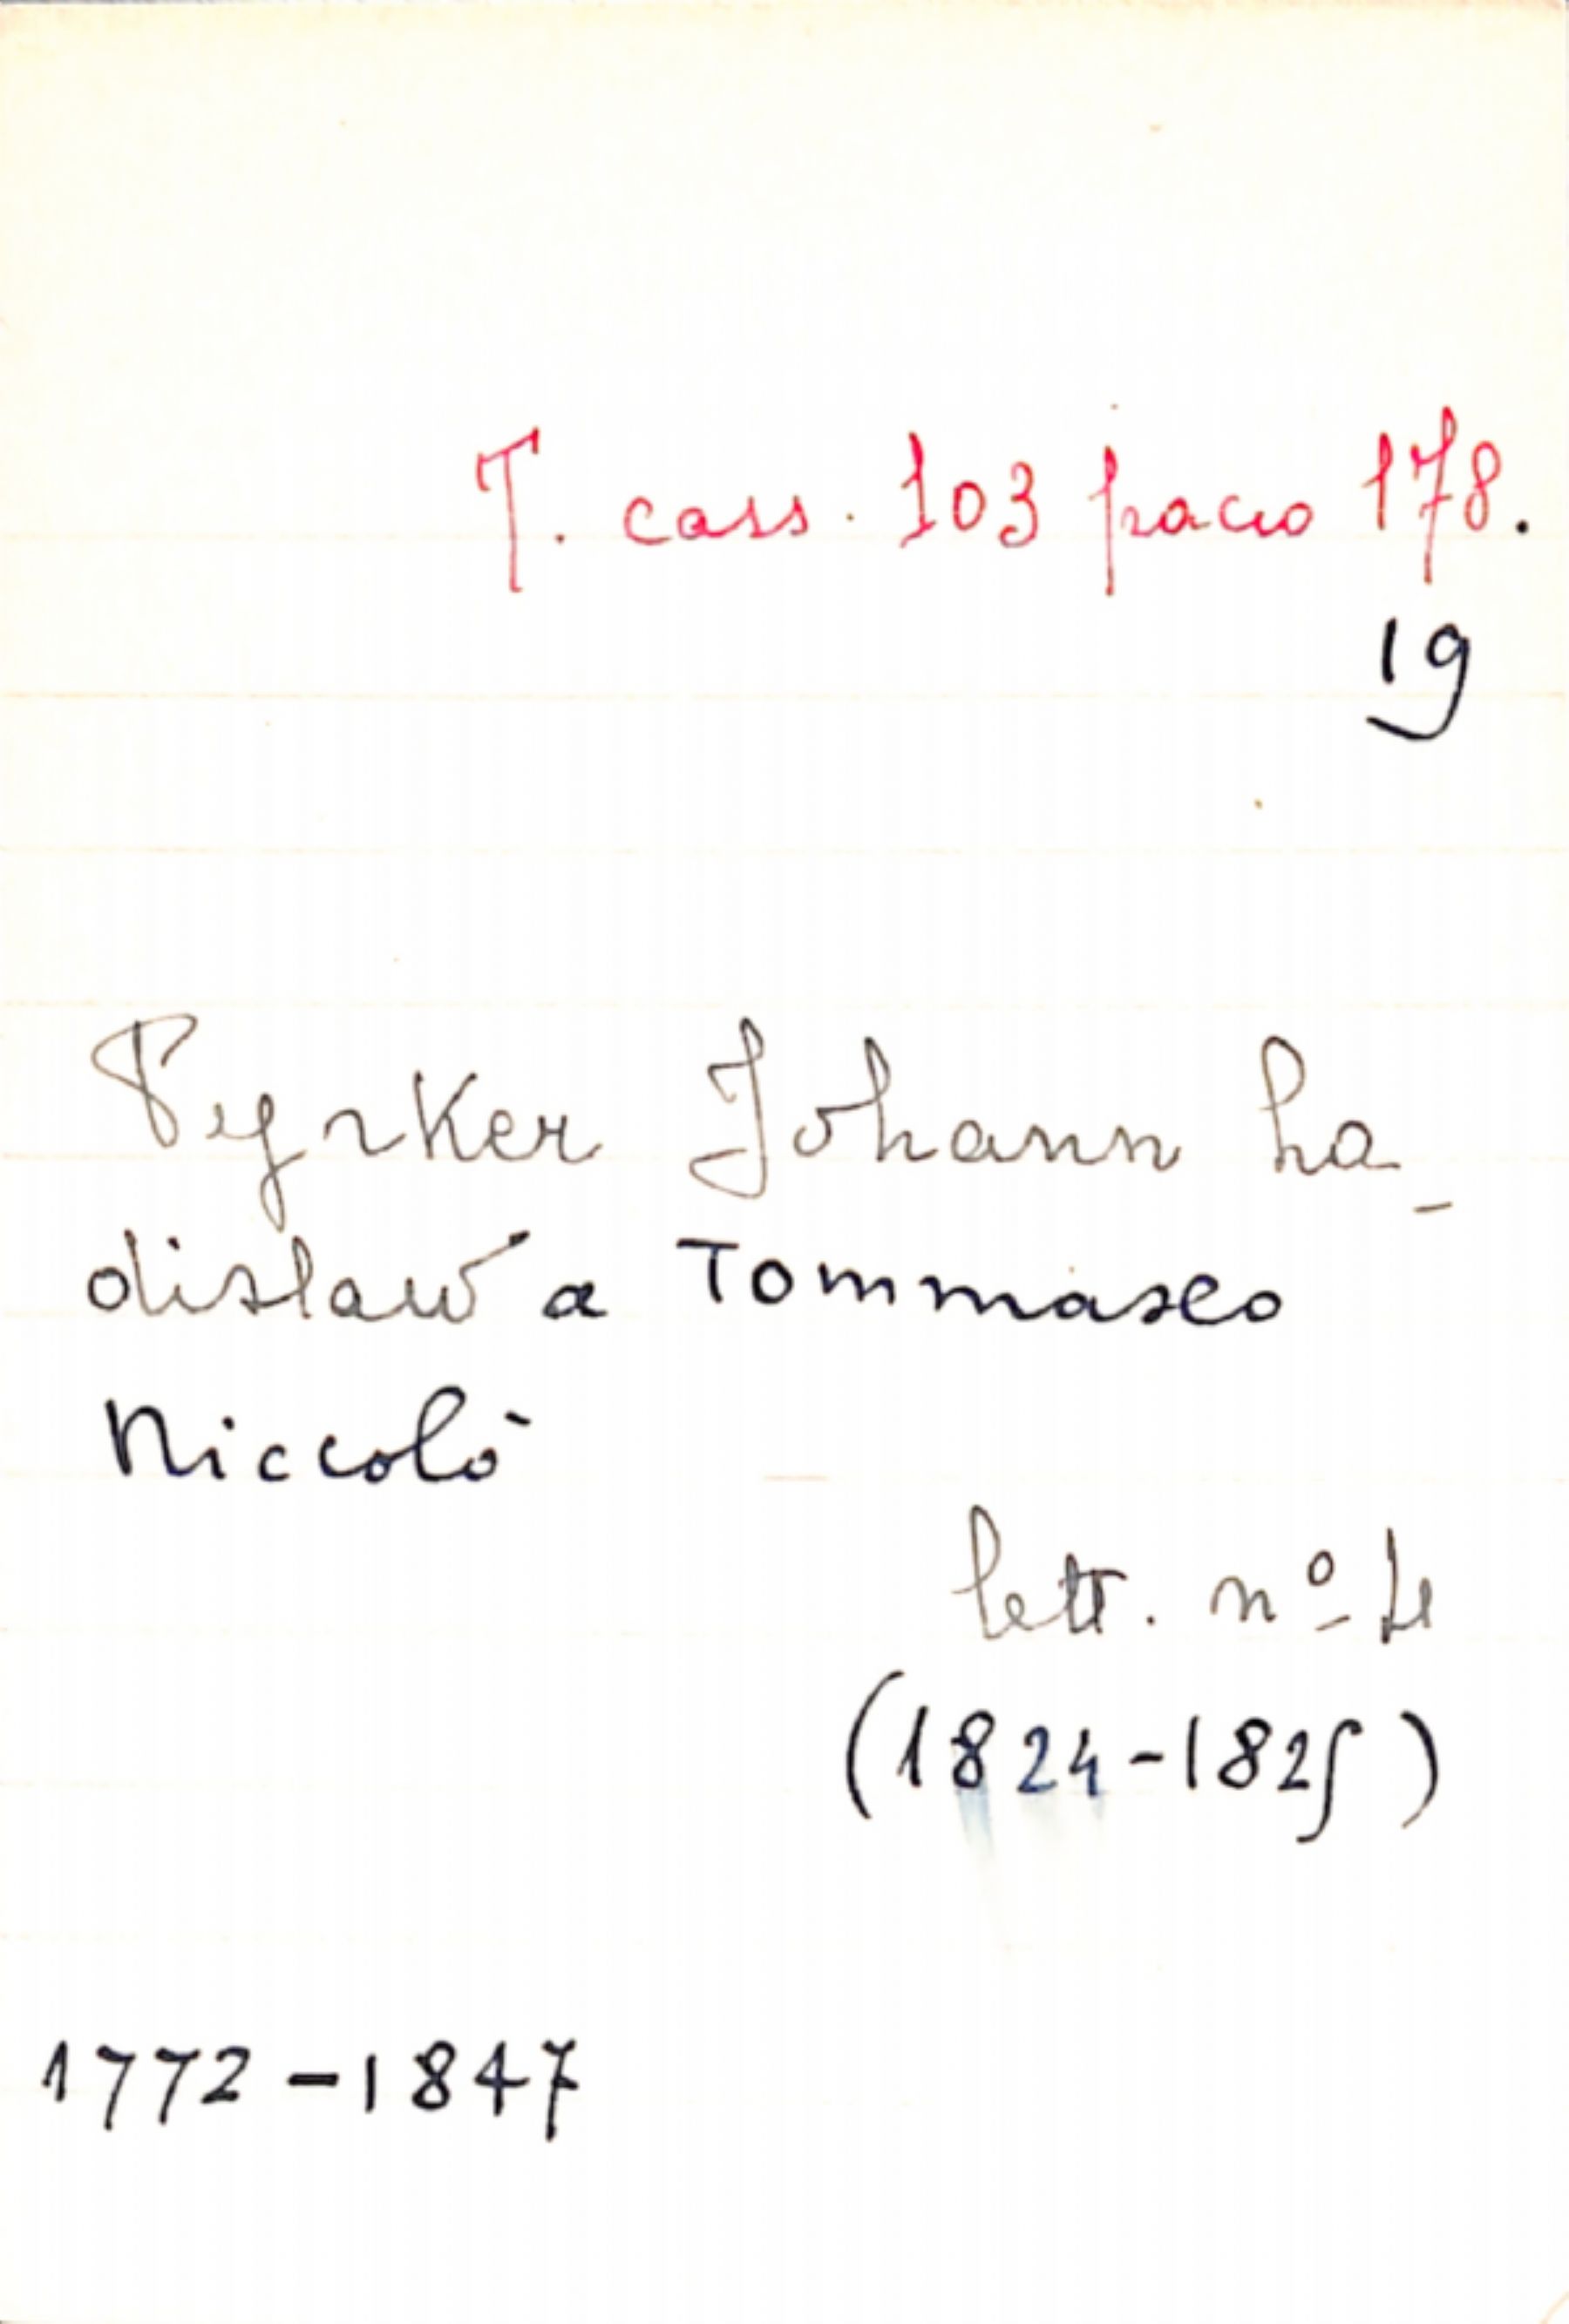 T. cass. 103 pacco 178.
19
Pyrker Johann La-
dislaw a Tommaseo
Niccolò
lett. nº 4
(1824-1825)
1772-1847